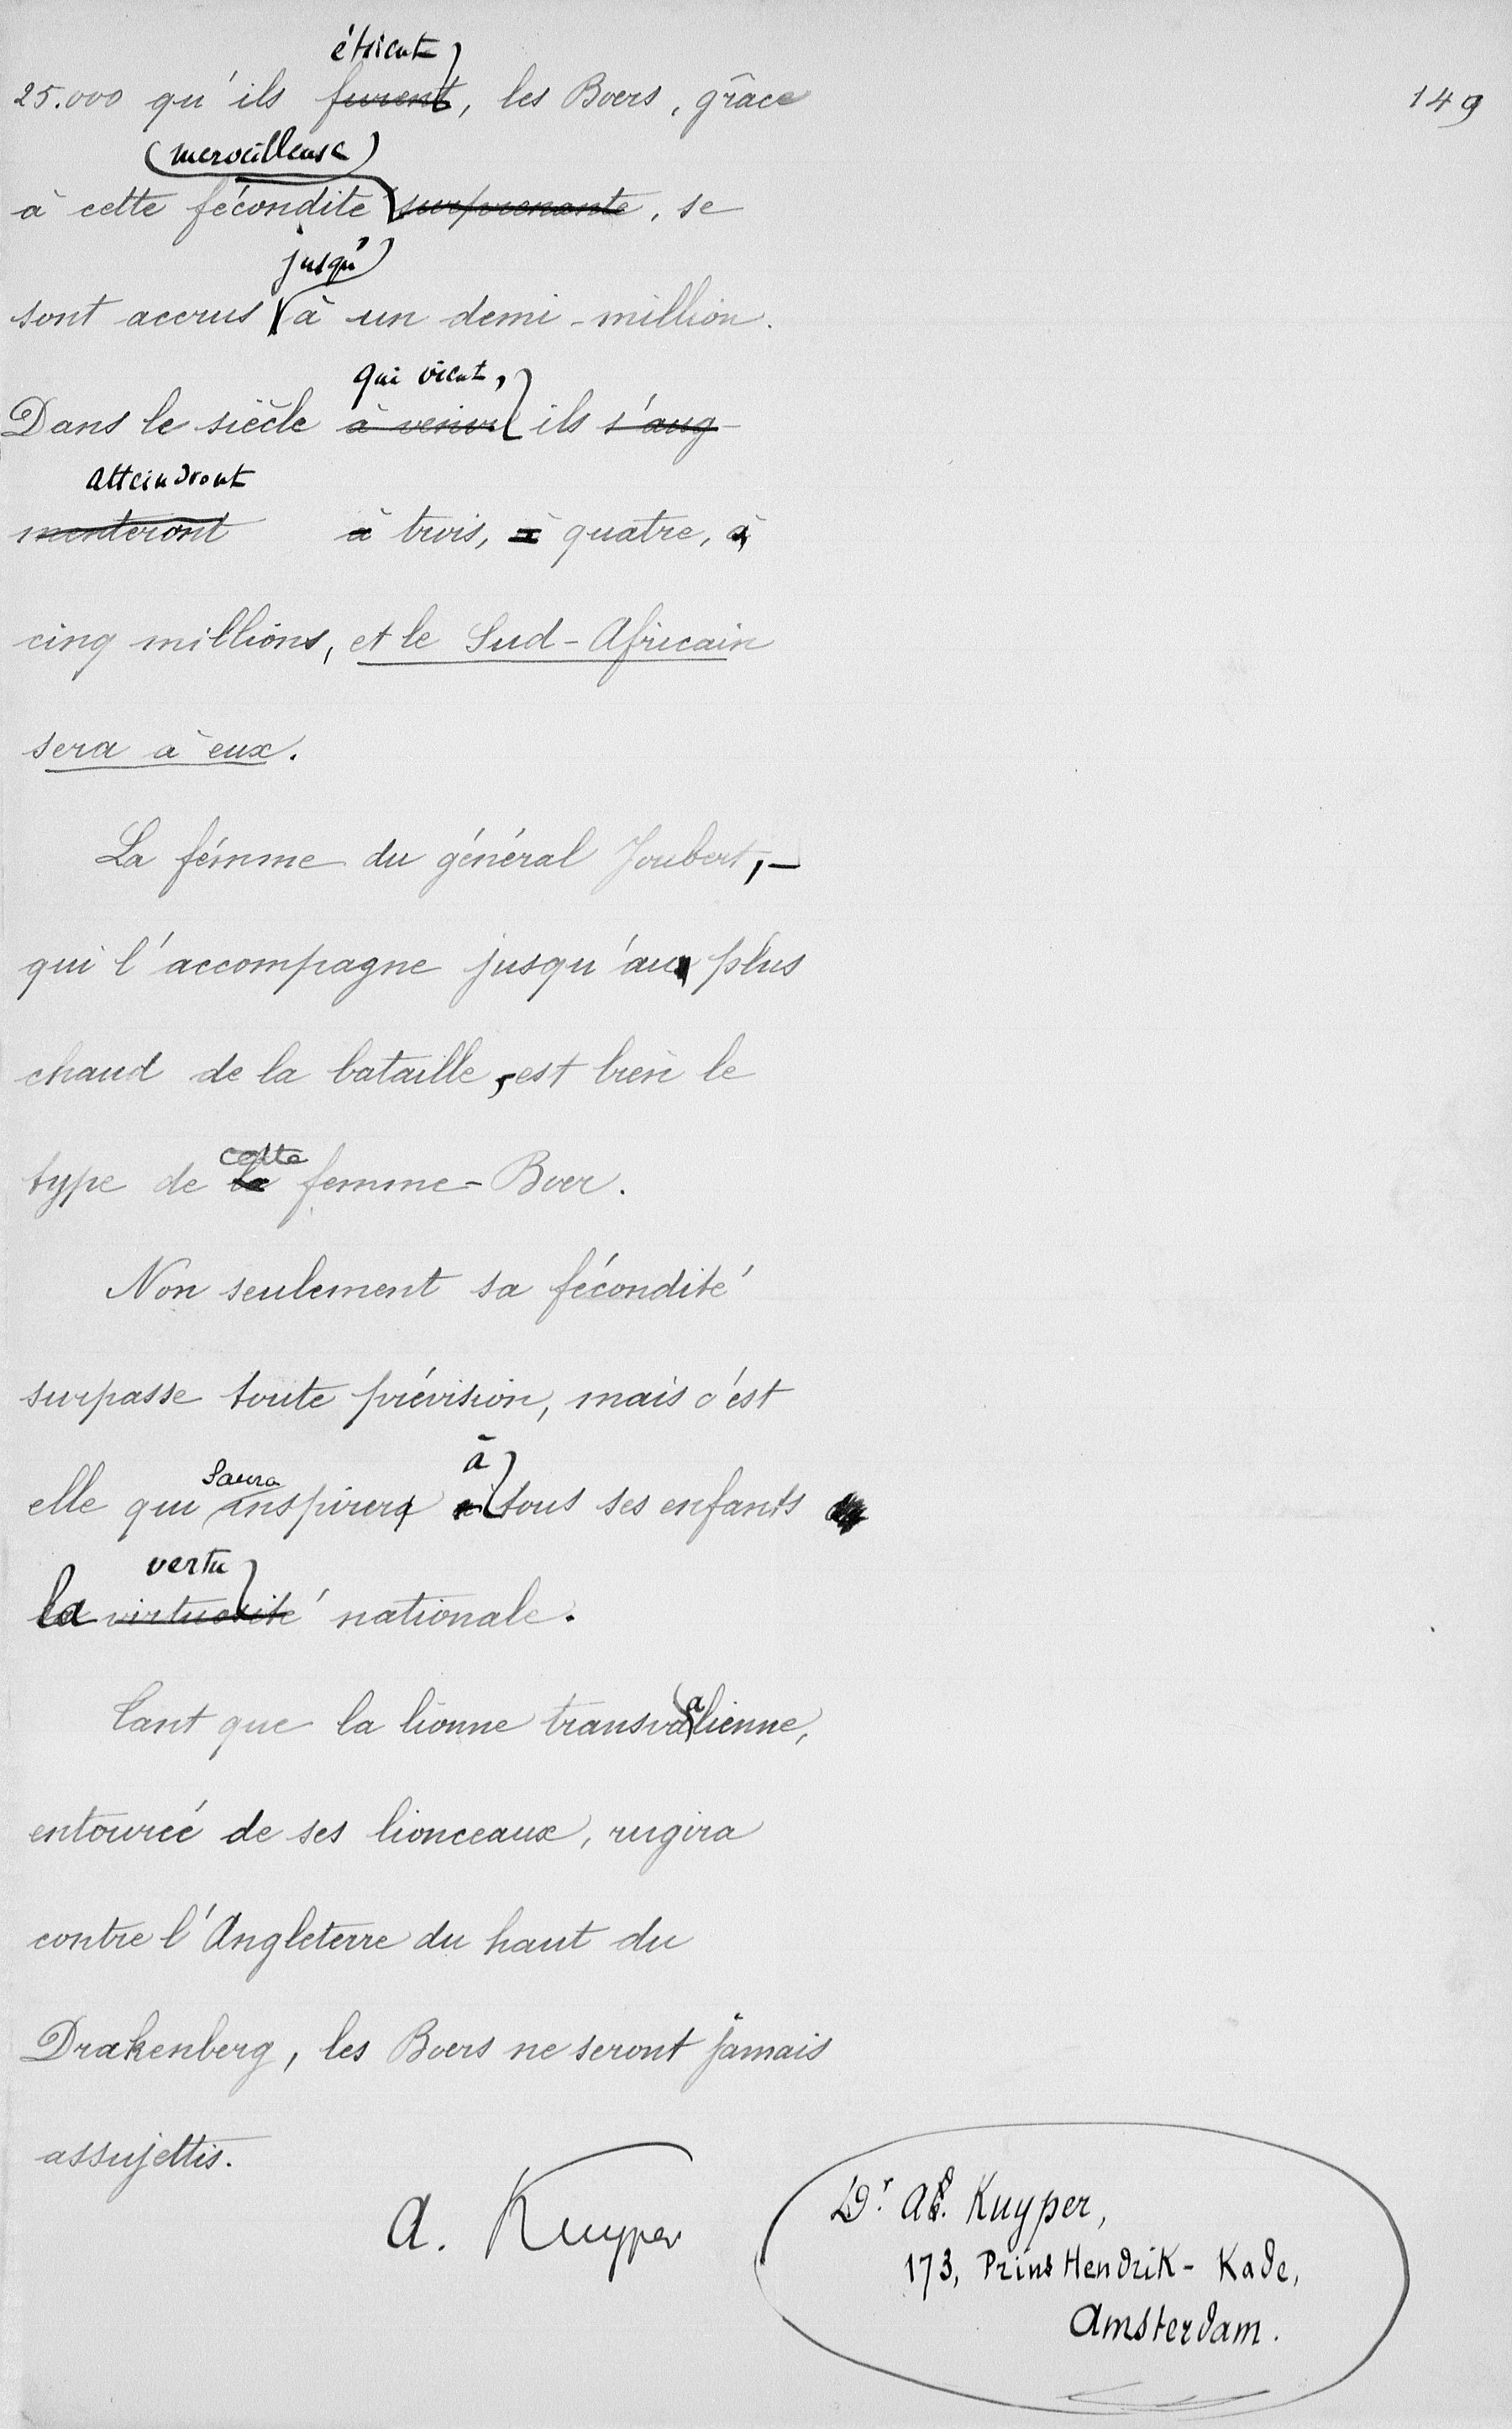 149
étaient
25.000 qu'ils furent, les Boers, grâce
(merveilleuse)
à cette fécondité surprenante, se
jusqu'
sont accrus à un demi-million.
qui vient,
Dans le siècle à venir ils s'aug-
atteindront
menteront à trois, à quatre, à
cinq millions, et le Sud-Africain
sera à eux.
La femme du général Joubert, -
qui l'accompagne jusqu'au plus
chaud de la bataille, est bien le
cette
type de la femme-Boer.
Non seulement sa fécondité
surpasse toute prévision, mais c'est
saura à
elle qui inspirer tous ses enfants
vertu
la virtuosité nationale.
a
Tant que la lionne transvalienne,
entourée de ses lionceaux, rugira
contre l'Angleterre du haut du
Drakenberg, les Boers ne seront jamais
assujettis.
A. Kuyper
Dr. A. Kuyper,
173, Prins Hendrik-Kade,
Amsterdam.